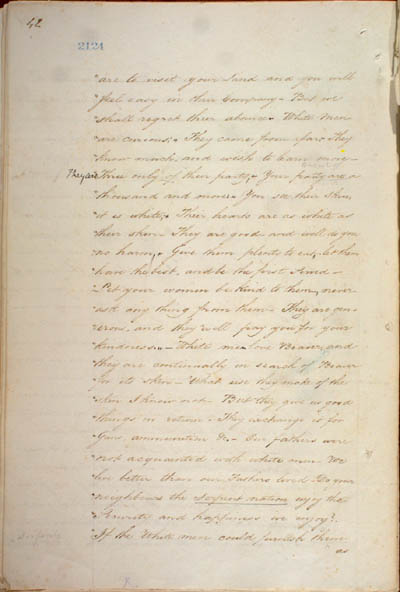 42
2124
"are to visit your Land and you will
"feel easy in their Company. But we
"shall regret their absence. White men
"are curious: They come from afar. They
"know much, and wish to learn more.
They are "Three only of their party. Your party are a
"thousand and more. You see their Skin,
"it is white; Their heads are as white as
"their skin. They are good and will do you
"no harm. Give them plenty to eat, let them
"have the best, and be the first served.
"Let your women be kind to them, never
"ask any thing from them. They are gen
"erous, and they will pay you for your
"kindness. White men love Beaver, and
"they are continually in search of Beaver
"for its skin. What use they make of the
"skin I know not. But they give us good
"things in return. They exchange it for
"Guns, ammunition &c. Our fathers were
"not acquainted with white men. We
"live better than our Fathers lived. Do your
"neighbours the serpent nation enjoy the
"and happiness we enjoy?
"If the White men could furnish them
as